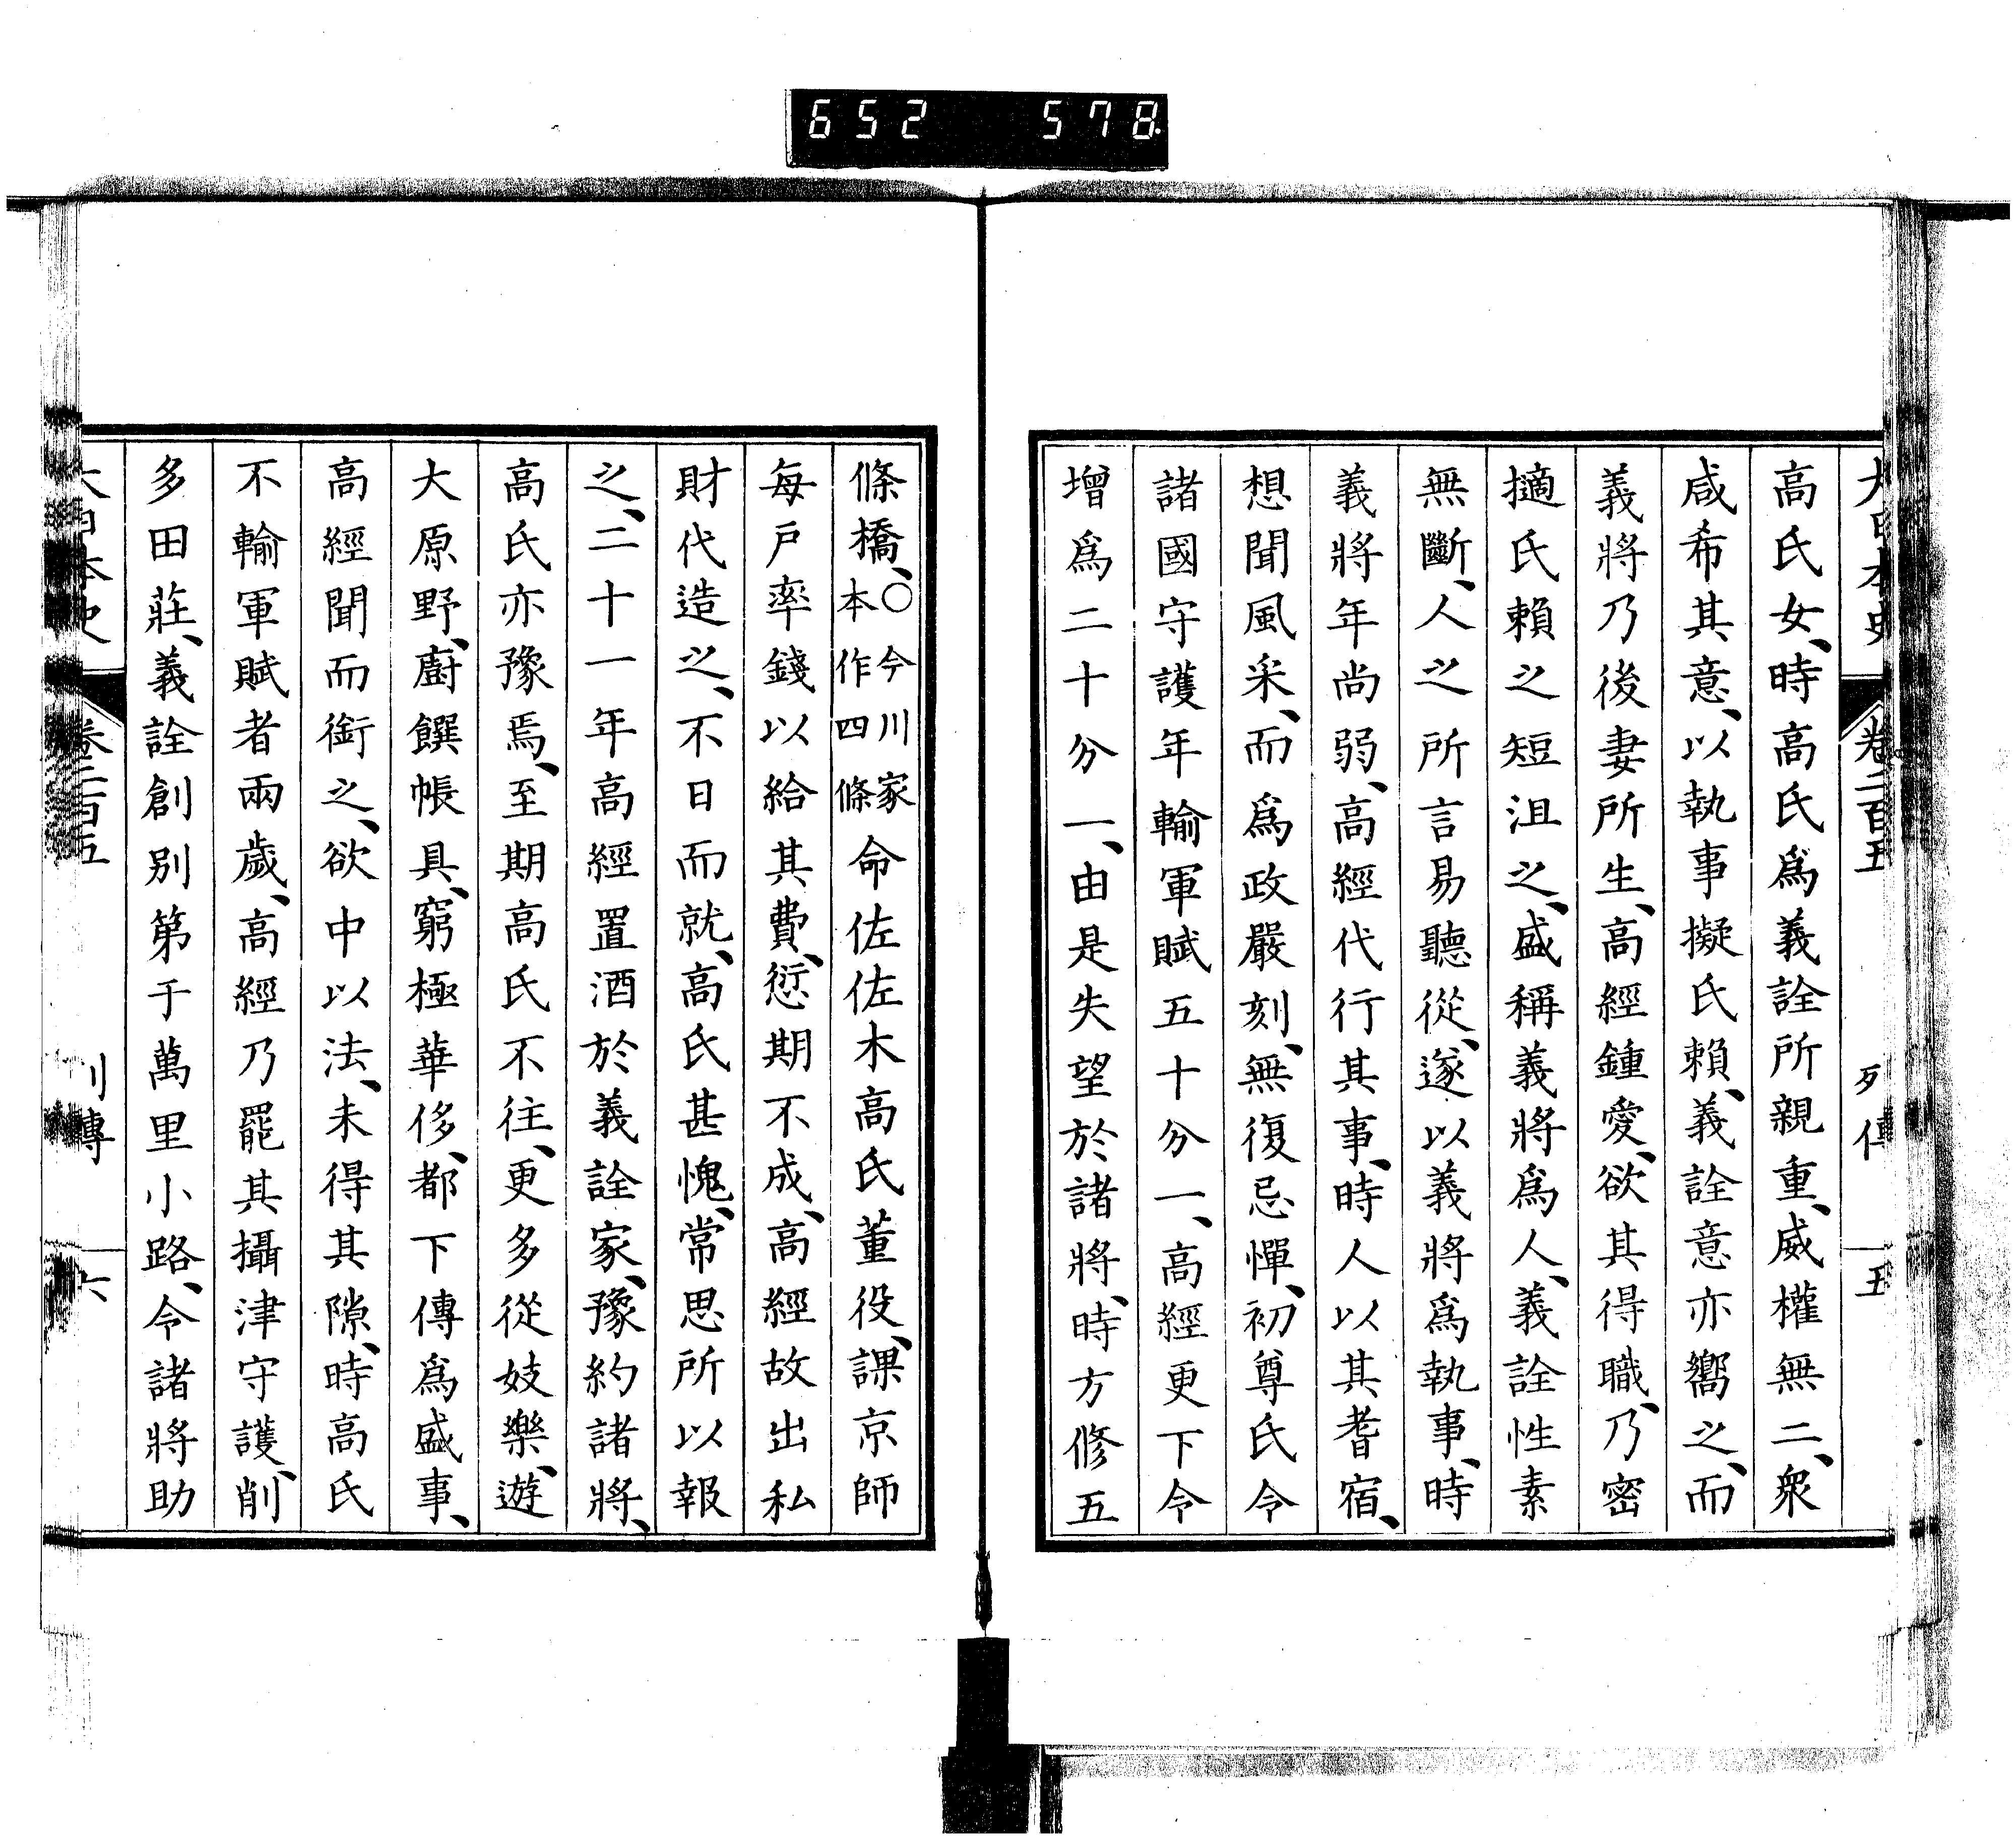 652 578
大日本史 卷二百五 列傳 五
高氏女、時高氏爲義詮所親重、威權無二、衆
咸希其意、以執事擬氏賴、義詮意亦嚮之、而
義將乃後妻所生、高經鍾愛、欲其得職、乃密
擿氏賴之短沮之、盛稱義將爲人、義詮性素
無斷、人之所言易聽從、遂以義將爲執事、時
義將年尚弱、高經代行其事、時人以其耆宿、
想聞風采、而爲政嚴刻、無復忌憚、初尊氏令
諸國守護年輸軍賦五十分一、高經更下令
增爲二十分一、由是失望於諸將、時方修五
條橋、○今川家本作四條命佐佐木高氏董役、課京師
每戶率錢以給其費、愆期不成、高經故出私
財代造之、不日而就、高氏甚愧、常思所以報
之、二十一年高經置酒於義詮家、豫約諸將、
高氏亦豫焉、至期高氏不往、更多從妓樂、遊
大原野、廚饌帳具、窮極華侈、都下傳爲盛事、
高經聞而銜之、欲中以法、未得其隙、時高氏
不輸軍賦者兩歲、高經乃罷其攝津守護、削
多田莊、義詮創別第于萬里小路、令諸將助
大日本史 卷二百五 列傳 六